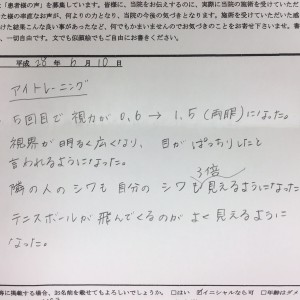 「患者様の声」を募集しています。皆様に、当院をお伝えするのに、実際に当院の施術を受けていた
た様の率直なお声が、何よりの力となり、当院の今後の気づきとなります。施術を受けていただいた感
けた結果こんな良い事があったなど、何でもかまいませんのでお気づきのことをお寄せ下さいませ。書
、一切自由です。文でも似顔絵でもご自由にお書きください。
平成 28 年 6 月 10 日
アイトレーニング
5回目で 視力が 0,6 → 1,5 (両眼)になった。
視界が明るく広くなり、目がぱっちりしたと
言われるようになった。
3倍
隣の人のシワも自分のシワも見えるようになった
テニスボールが飛んでくるのがよく見えるように
なった。
等に掲載する場合、お名前を載せてもよろしいでしょうか。 □はい ☑イニシャルなら可 □年齢はダメ